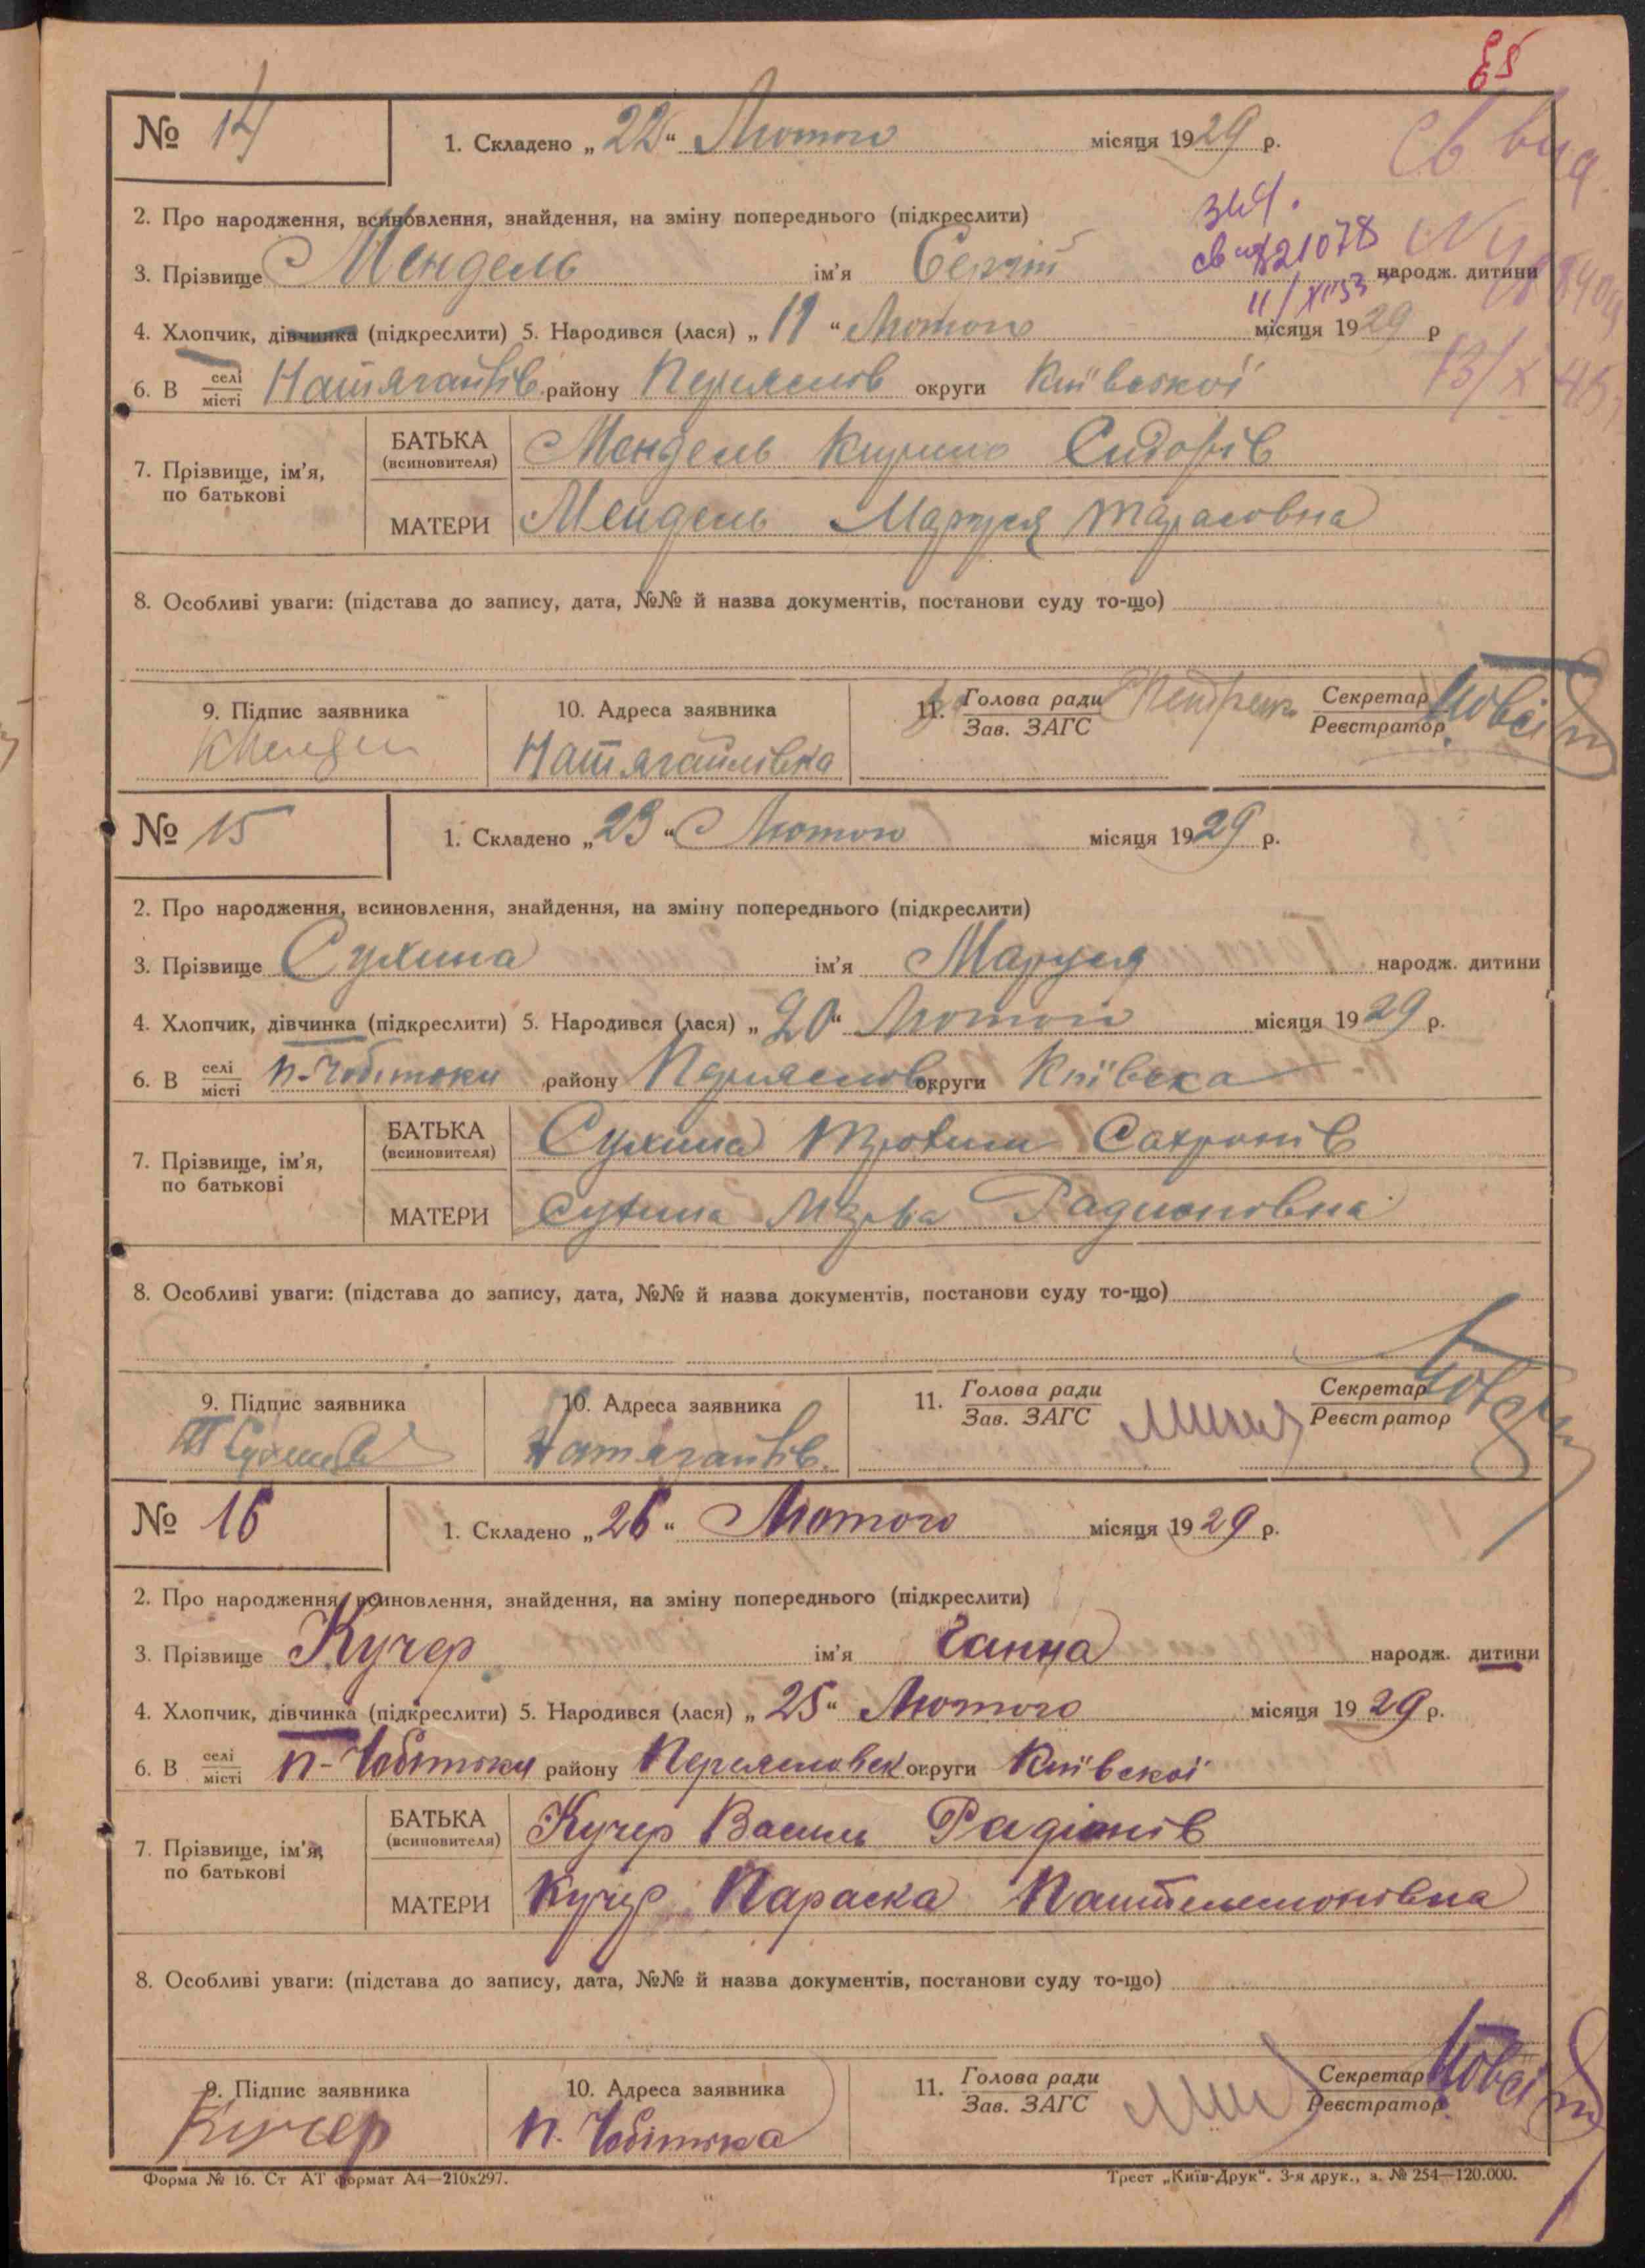 85
№ 14
1. Складено „22“ Лютого місяця 1929 р.
Св вид.
2. Про народження, всиновлення, знайдення, на зміну попереднього (підкреслити)
3. Прізвище Мендель ім’я Сергій народж. дитини
св 21078
4. Хлопчик, дівчинка (підкреслити) 5. Народився (лася) „11“ Лютого місяця 1929 р
13/X 45
6. В селі/місті Натягайлів. району Переяслов округи Київської
7. Прізвище, ім’я, по батькові
БАТЬКА (всиновителя) Мендель Кирило Сидорів
МАТЕРИ Мендель Маруся Тарасовна
8. Особливі уваги: (підстава до запису, дата, №№ й назва документів, постанови суду то-що)
9. Підпис заявника
10. Адреса заявника
11. Голова ради/Зав. ЗАГС
Секретар/Реєстратор
КМендель
Натягайлівка
№ 15
1. Складено „23“ Лютого місяця 1929 р.
2. Про народження, всиновлення, знайдення, на зміну попереднього (підкреслити)
3. Прізвище Сухина ім’я Маруся народж. дитини
4. Хлопчик, дівчинка (підкреслити) 5. Народився (лася) „20“ Лютого місяця 1929 р.
6. В селі/місті п-Чобітьки району Переяслов округи Київська
7. Прізвище, ім’я, по батькові
БАТЬКА (всиновителя) Сухина Трохим Сахронів
МАТЕРИ Сухина Радионовна
8. Особливі уваги: (підстава до запису, дата, №№ й назва документів, постанови суду то-що)
9. Підпис заявника
10. Адреса заявника
11. Голова ради/Зав. ЗАГС
Секретар/Реєстратор
Т Сухина
Натягайлів.
№ 16
1. Складено „26“ Лютого місяця 1929 р.
2. Про народження, всиновлення, знайдення, на зміну попереднього (підкреслити)
3. Прізвище Кучер ім’я Ганна народж. дитини
4. Хлопчик, дівчинка (підкреслити) 5. Народився (лася) „25“ Лютого місяця 1929 р.
6. В селі/місті п-Чобітьки району Переясловск округи Київської
7. Прізвище, ім’я, по батькові
БАТЬКА (всиновителя) Кучер Василь Радіонів
МАТЕРИ Кучер Параска Пантелемонівна
8. Особливі уваги: (підстава до запису, дата, №№ й назва документів, постанови суду то-що)
9. Підпис заявника
10. Адреса заявника
11. Голова ради/Зав. ЗАГС
Секретар/Реєстратор
Кучер
п. Чобітька
Форма № 16. Ст АТ формат А4—210х297.
Трест „Київ-Друк“. 3-я друк., з. № 254—120.000.